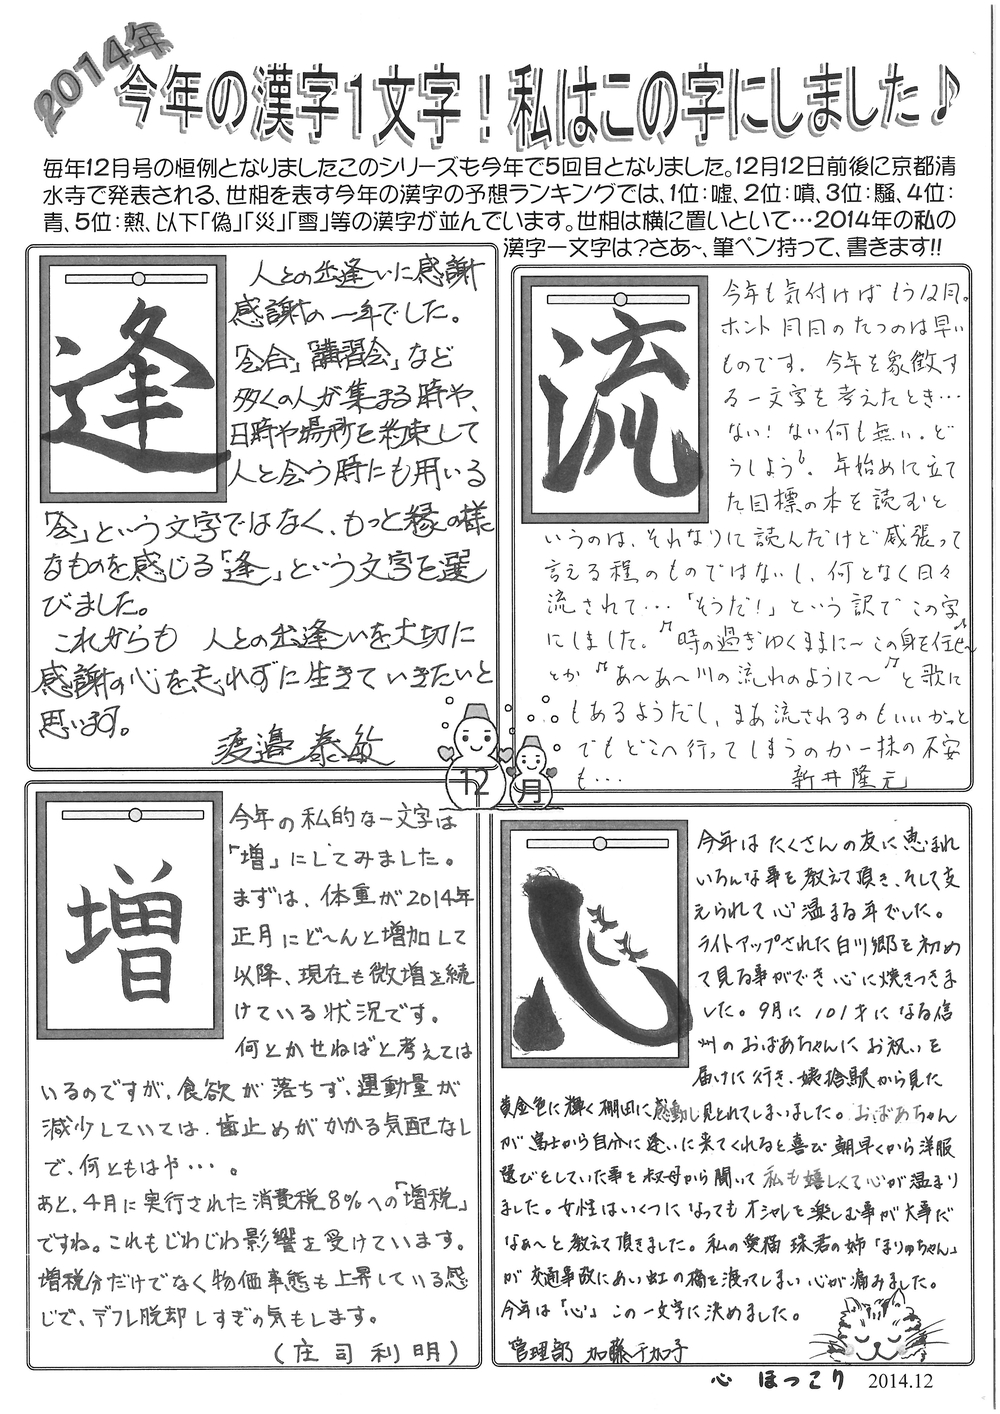 2014年
今年の漢字1文字！私はこの字にしました♪
毎年12月号の恒例となりましたこのシリーズも今年で5回目となりました。12月12日前後に京都清
水寺で発表される、世相を表す今年の漢字の予想ランキングでは、1位：嘘、2位：噴、3位：騒、4位：
青、5位：熱、以下「偽」「災」「雪」等の漢字が並んでいます。世相は横に置いといて…2014年の私の
漢字一文字は？さあ～、筆ペン持って、書きます!!
逢
人との出逢いに感謝
感謝の一年でした。
「会合」「講習会」など
多くの人が集まる時や、
日時や場所を約束して
人と会う時にも用いる
「会」という文字ではなく、もっと縁の様
なものを感じる「逢」という文字を選
びました。
これからも 人との出逢いを大切に
感謝の心を忘れずに生きていきたいと
思います。
渡邉泰敏
流
今年も気付けばもう12月。
ホント月日のたつのは早い
ものです。今年を象徴す
る一文字を考えたとき…
ない！ない何も無い。ど
うしよう。年始めに立て
た目標の本を読むと
いうのは、それなりに読んだけど威張って
言える程のものではないし、何となく日々
流されて…「そうだ！」という訳でこの字
にしました。♪時の過ぎゆくままに～この身を任せ～♪
とか♪あ～あ～川の流れのように～♪と歌に
もあるようだし、まあ流されるのもいいかっと
でもどこへ行ってしまうのか一抹の不安
も…
新井隆元
12月
増
今年の私的な一文字は
「増」にしてみました。
まずは、体重が2014年
正月にど～んと増加して
以降、現在も微増を続
けている状況です。
何とかせねばと考えては
いるのですが、食欲が落ちず、運動量が
減少していては、歯止めがかかる気配なし
で、何ともはや…。
あと、4月に実行された消費税8％への「増税」
ですね。これもじわじわ影響を受けています。
増税分だけでなく物価事態も上昇している感
じで、デフレ脱却しすぎの気もします。
（庄司利明）
心
今年はたくさんの友に恵まれ
いろんな事を教えて頂き、そして支
えられて心温まる年でした。
ライトアップされた白川郷を初め
て見る事ができ心に焼きつきま
した。9月に101才になる信
州のおばあちゃんにお祝いを
届けに行き、姨捨駅から見た
黄金色に輝く棚田に感動し見とれてしまいました。おばあちゃん
が富士から自分に逢いに来てくれると喜び朝早くから洋服
選びをしていた事を叔母から聞いて私も嬉しくて心が温まり
ました。女性はいくつになってもオシャレを楽しむ事が大事だ
なぁ～と教えて頂きました。私の愛猫 珠君の姉「まりゅちゃん」
が交通事故にあい虹の橋を渡ってしまい心が痛みました。
今年は「心」この一文字に決めました。
管理部 加藤千加子
心 ほっこり 2014.12